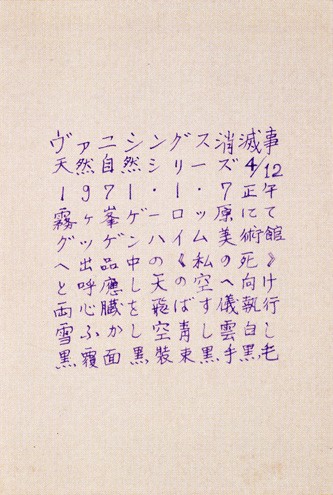 ヴァニシングス消滅事
天然自然シリーズ4/12
1971・1・7正午
霧ヶ峯ゲーロッ原にて
グッゲンハイム美術館
へ出品中の《私の死》
と呼應し天の空へ向け
両心臓を飛ばす儀執行
雪ふかし空青し雲白し
黒覆面黒装束黒手黒毛